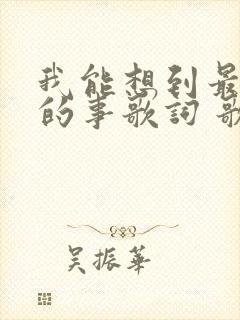 我能想到最
的事歌詞 歌
吴振華